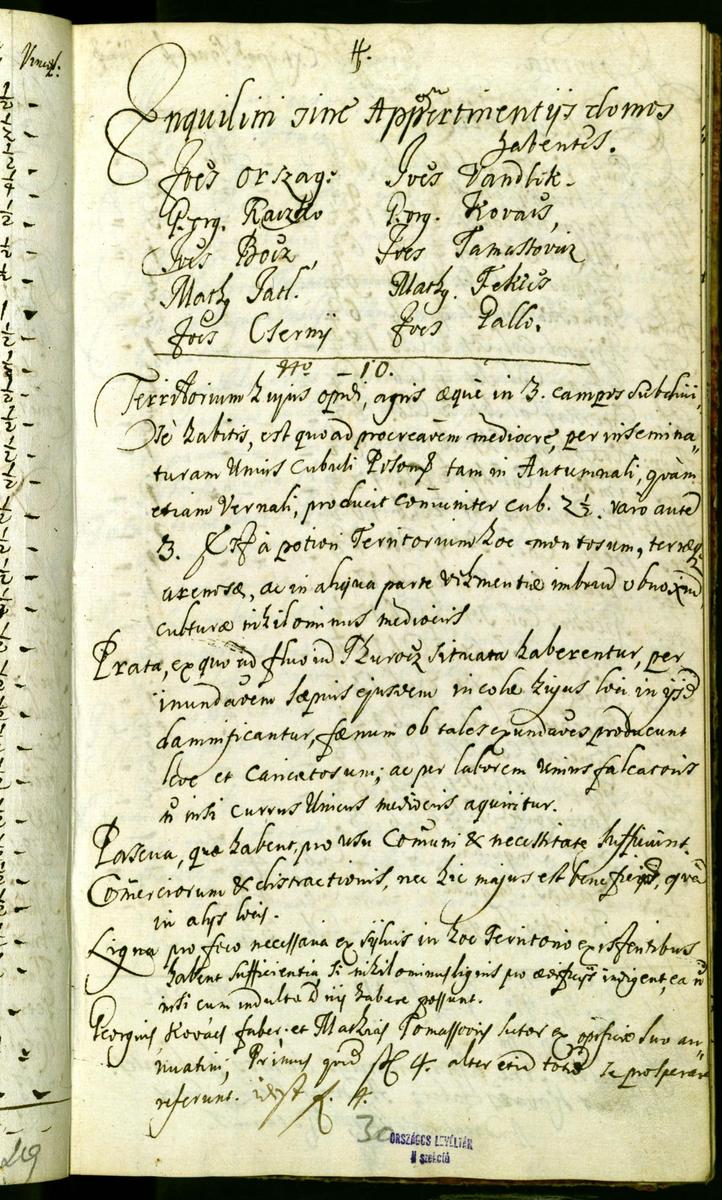 4.
Inquilini sine Appertinentijs domos
habentes.
Joēs Orszag. Joēs Vandlik.
Georg. Raczko Georg. Kovacs,
Joēs Bocz, Joēs Tamassoviz
Math. Jatl. Math. Fekus
Joēs Cserny Joēs Pallo.
No – 10.
Territorium hujus oppdi, agris æque in 3. campos subdivi-
se habitis, est quoad procreaōem mediocre, per insemina-
turam Unius Cubuli Poson. tam in Autumnali, quàm
etiam Vernali, producit Com̄uniter Cub. 2½. raro autē
3. Est à potiori Territorium hoc montosum, terræq
arenosæ, ac in aliqua parte vehmentiæ imbriū obnoxiū,
culturæ nihilominus mediocris
Prata, ex quo ad fluviū Thurocz situata haberentur, per
inundaōem sæpius ejusdem incolæ hujus loci in ijsd
damnificantur, fænum ob tales exundaōes producunt
leve et Caricetosum; ac per laborem Unius falcatoris
ñ nisi currus Unicus mediocris aquiritur.
Pascua, quæ habent, pro usu Com̄uni & necessitate sufficiunt.
Com̄erciorum & distractionis, nec hic majus est beneficiū, qvā
in alys locis.
Ligna pro foco necessaria ex sylvis in hoc Territorio existentibus
habent sufficientia, si nihilominus lignis pro ædificijs indigent, ea ñ
nisi cum indultu D nij habere possunt.
Georgius Kovács faber, et Mathias Tomassovis sutor ex opificio suo an-
nuatim, Primus quid f 4. alter etiā totid se prosperare
referunt. idest f. 4.
30
ORSZÁGOS LEVÉLTÁR
II szekció